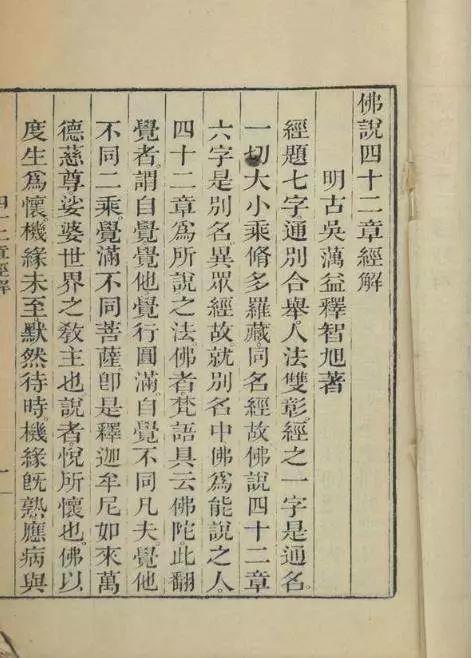 佛說四十二章經解
明古吳蕅益釋智旭著
經題七字通別合舉。人法雙彰。經之一字是通名。
一切大小乘脩多羅藏同名經故佛說四十二章
六字是別名異眾經故就別名中佛爲能說之人。
四十二章爲所說之法。佛者梵語具云佛陀。此翻
覺者。謂自覺覺他覺行圓滿。自覺不同凡夫。覺他
不同二乘。覺滿不同菩薩。卽是釋迦牟尼如來萬
德慈尊娑婆世界之敎主也說者悅所懷也。佛以
度生爲懷。機緣未至。默然待時。機緣旣熟。應病與
四十二章經解
一